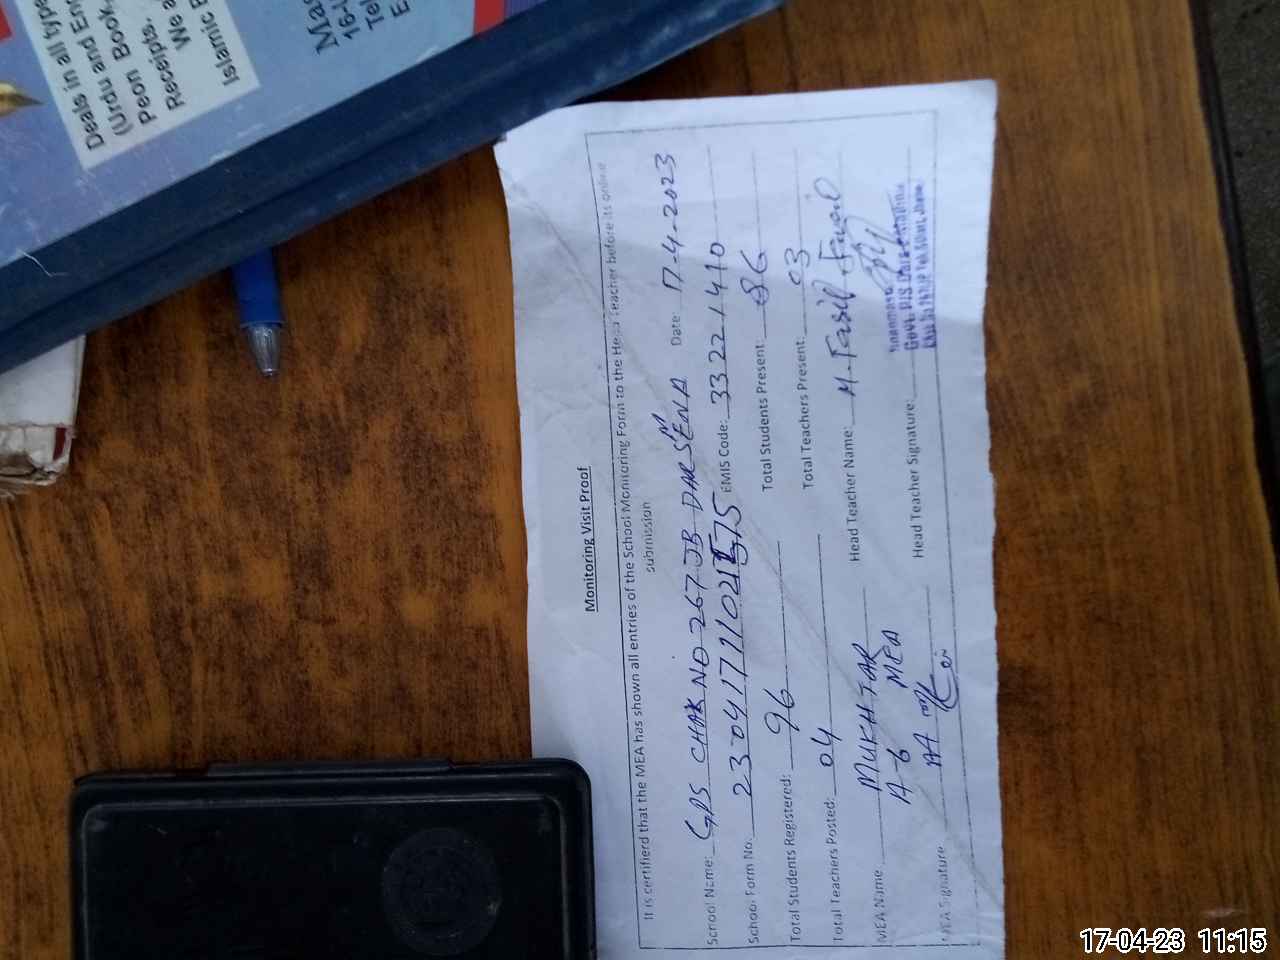 Deals in all type
(Urdu and Eng
Peon Book,
Receipts,
We a
Islamic B
Mas
16-
Tel
E
Monitoring Visit Proof
It is certifierd that the MEA has shown all entries of the School Monitoring Form to the Head Teacher before its online
submission
School Name: GPS CHAK NO 267 JB DARSENA Date: 17-4-2023
School Form No: EMIS Code: 33221410
Total Students Registered: 96 Total Students Present: 86
Total Teachers Posted: 04 Total Teachers Present: 03
MEA Name: MUKHTAR Head Teacher Name: M. Fasil
A-6 MEA
MEA Signature Head Teacher Signature:
Govt. P/S
17-04-23 11:15